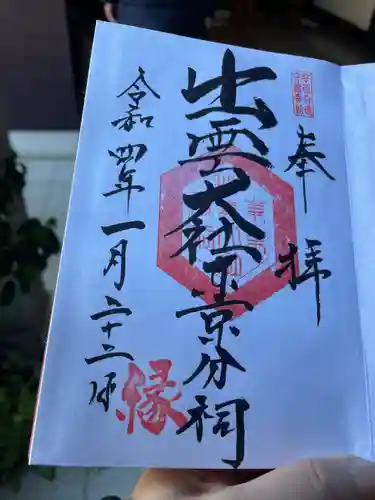 奉拝
出雲大社東京分祠
縁
令和四年一月二十二日